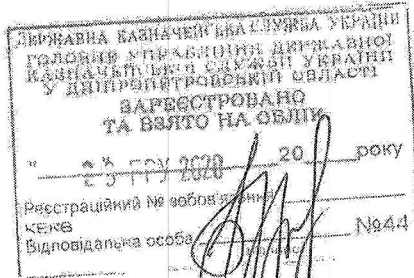 ДЕРЖАВНА КАЗНАЧЕЙСЬКА СЛУЖБА УКРАЇНИ
ГОЛОВНЕ УПРАВЛІННЯ ДЕРЖАВНОЇ
КАЗНАЧЕЙСЬКОЇ СЛУЖБИ УКРАЇНИ
У ДНІПРОПЕТРОВСЬКІЙ ОБЛАСТІ
ЗАРЕЄСТРОВАНО
ТА ВЗЯТО НА ОБЛІК
" ГРУ 2020 20 року
Реєстраційний № зобов'язання
КЕКВ
Відповідальна особа №44